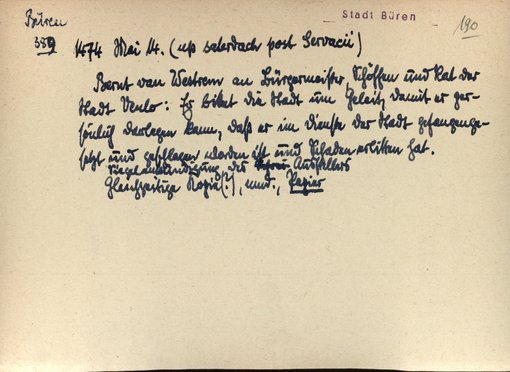 Büren
389
Stadt Büren
190
1474 Mai 14. (ups saterdach post Servacii)
Bernt van Westrem an Bürgermeister, Schöffen und Rat der
Stadt Venlo: Er bittet die Stadt um Geleit, damit er per-
sönlich darlegen kann, daß er im Dienste der Stadt gefangenge-
setzt und geschlagen worden ist und Schaden erlitten hat.
Siegelankündigung des Ausstellers
Gleichzeitige Kopie(?), nnd., Papier